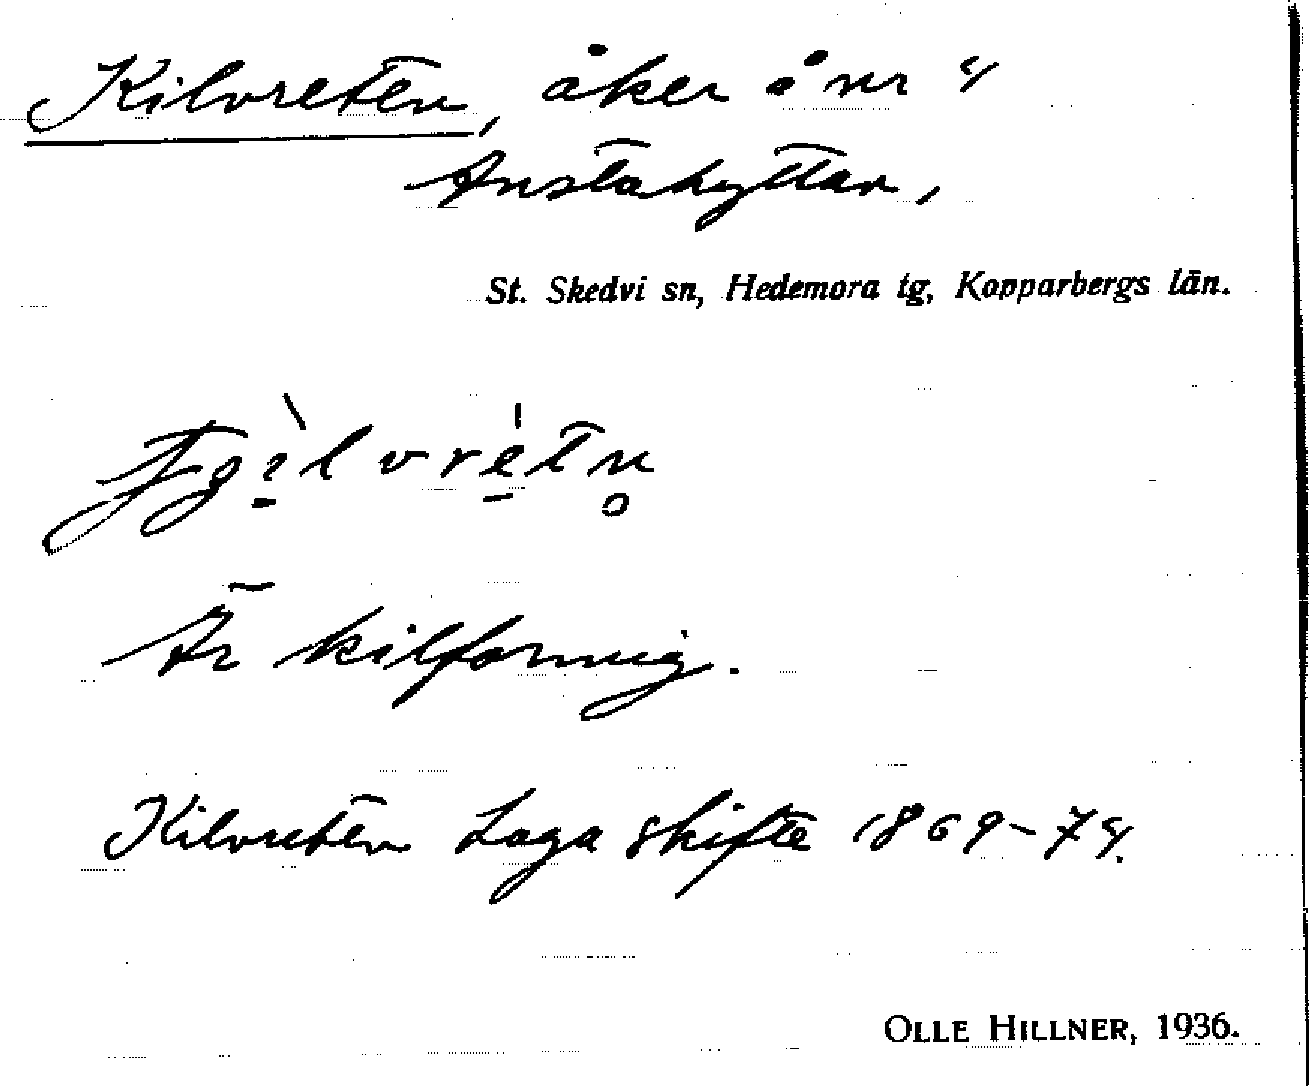 Kilvreten, åker å nr 4
Anstahyttan,
St. Skedvi sn, Hedemora tg, Kopparbergs län.
Är kilformig.
Kilvreten Laga skifte 1869-74.
OLLE HILLNER, 1936.